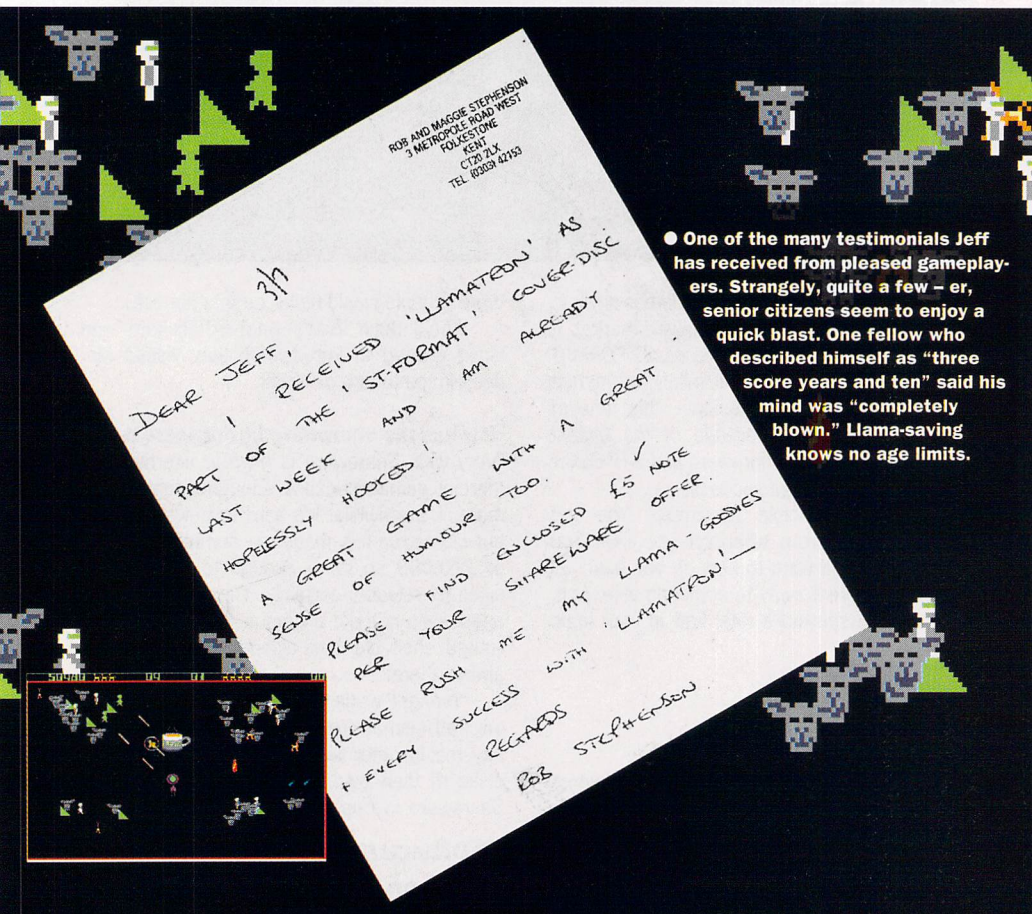 ROB AND MAGGIE STEPHENSON
3 METROPOLE ROAD WEST
FOLKESTONE
KENT
CT20 2LX
TEL. (0303) 42153
3/7
DEAR JEFF,
I RECEIVED 'LLAMATRON' AS
PART OF THE 'ST-FORMAT' COVER-DISC
LAST WEEK AND AM ALREADY
HOPELESSLY HOOKED.
A GREAT GAME WITH A GREAT
SENSE OF HUMOUR TOO.
PLEASE FIND ENCLOSED £5 NOTE
PER YOUR SHAREWARE OFFER.
PLEASE RUSH ME MY LLAMA-GOODIES
+ EVERY SUCCESS WITH 'LLAMATRON'—
REGARDS
ROB STEPHENSON
● One of the many testimonials Jeff
has received from pleased gameplay-
ers. Strangely, quite a few – er,
senior citizens seem to enjoy a
quick blast. One fellow who
described himself as “three
score years and ten” said his
mind was “completely
blown.” Llama-saving
knows no age limits.